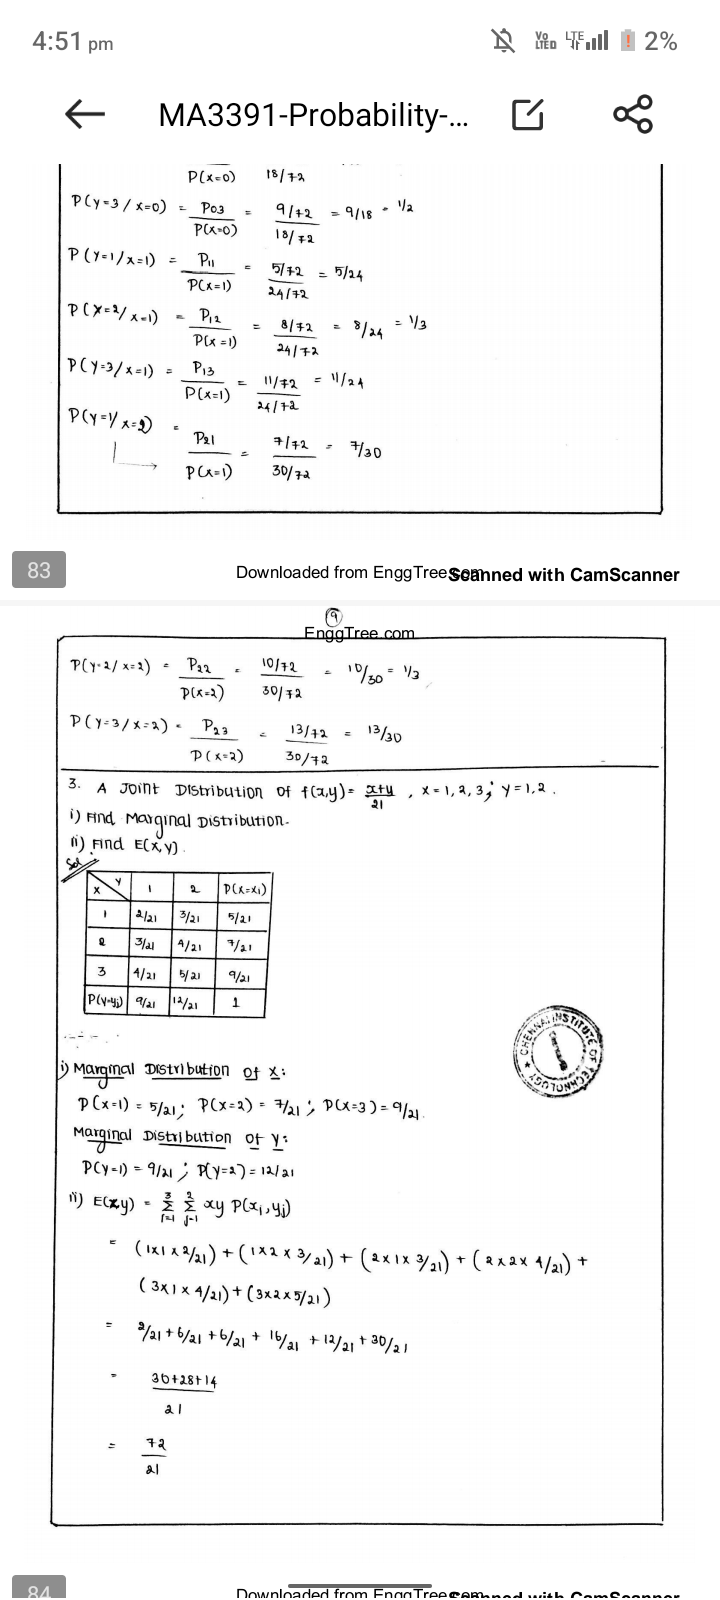 4:51 pm VoLTED LTE 2%
MA3391-Probability-...
P(x=0) 18/72
P(y=3/x=0) = P03/P(x=0) = 9/72 / 18/72 = 9/18 = 1/2
P(y=1/x=1) = P11/P(x=1) = 5/72 / 24/72 = 5/24
P(y=2/x=1) = P12/P(x=1) = 8/72 / 24/72 = 8/24 = 1/3
P(y=3/x=1) = P13/P(x=1) = 11/72 / 24/72 = 11/24
P(y=1/x=2) = P21/P(x=1) = 7/72 / 30/72 = 7/30
83
Downloaded from EnggTree.com Scanned with CamScanner
9
EnggTree.com
P(y=2/x=2) = P22/P(x=2) = 10/72 / 30/72 = 10/30 = 1/3
P(y=3/x=2) = P23/P(x=2) = 13/72 / 30/72 = 13/30
3. A Joint Distribution of f(x,y) = x+y/21, x=1,2,3; y=1,2.
i) Find Marginal Distribution.
ii) Find E(x,y).
Sol
x y 1 2 P(x=xi)
1 2/21 3/21 5/21
2 3/21 4/21 7/21
3 4/21 5/21 9/21
P(y=yj) 9/21 12/21 1
CHENNAI INSTITUTE OF TECHNOLOGY
i) Marginal Distribution of x:
P(x=1) = 5/21; P(x=2) = 7/21; P(x=3) = 9/21.
Marginal Distribution of y:
P(y=1) = 9/21; P(y=2) = 12/21
ii) E(xy) = 3 Σ i=1 2 Σ j=1 xy P(xi,yj)
= (1x1x2/21) + (1x2x3/21) + (2x1x3/21) + (2x2x4/21) +
(3x1x4/21) + (3x2x5/21)
= 2/21 + 6/21 + 6/21 + 16/21 + 12/21 + 30/21
= 30+28+14
21
= 72
21
84
Downloaded from EnggTree.com Scanned with CamScanner